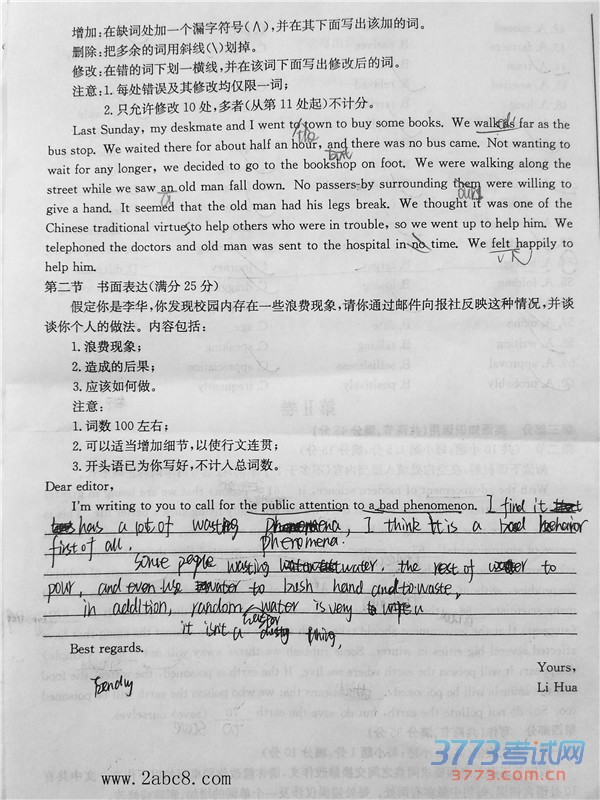 增加:在缺词处加一个漏字符号(∧),并在其下面写出该加的词。
删除:把多余的词用斜线(\)划掉。
修改:在错的词下划一横线,并在该词下面写出修改后的词。
注意:1. 每处错误及其修改均仅限一词;
2. 只允许修改10处,多者(从第11处起)不计分。
Last Sunday, my deskmate and I went to town to buy some books. We walk as far as the
bus stop. We waited there for about half an hour, and there was no bus came. Not wanting to
wait for any longer, we decided to go to the bookshop on foot. We were walking along the
street while we saw an old man fall down. No passers-by surrounding them were willing to
give a hand. It seemed that the old man had his legs break. We thought it was one of the
Chinese traditional virtues to help others who were in trouble, so we went up to help him. We
telephoned the doctors and old man was sent to the hospital in no time. We felt happily to
help him.
第二节 书面表达(满分25分)
假定你是李华,你发现校园内存在一些浪费现象,请你通过邮件向报社反映这种情况,并谈
谈你个人的做法。内容包括:
1. 浪费现象;
2. 造成的后果;
3. 应该如何做。
注意:
1. 词数100左右;
2. 可以适当增加细节,以使行文连贯;
3. 开头语已为你写好,不计入总词数。
Dear editor,
I'm writing to you to call for the public attention to a bad phenomenon. I find it
has a lot of wasting phenomena, I think it is a bad behavior
first of all, phenomena.
Some people wasting water. the rest of water to
pour, and even use water to hand and to waste,
in addition, random water is very
it isn't a thing,
Best regards.
Yours,
Li Hua
3773考试网
www.3773.com.cn
www.2abc8.com